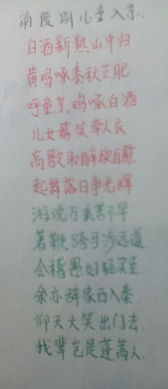 南陵别儿童入京
白酒新熟山中归
黄鸡啄黍秋正肥
呼童烹鸡酌白酒
儿女嬉笑牵人衣
高歌取醉欲自慰
起舞落日争光辉
游说万乘苦不早
著鞭跨马涉远道
会稽愚妇轻买臣
余亦辞家西入秦
仰天大笑出门去
我辈岂是蓬蒿人